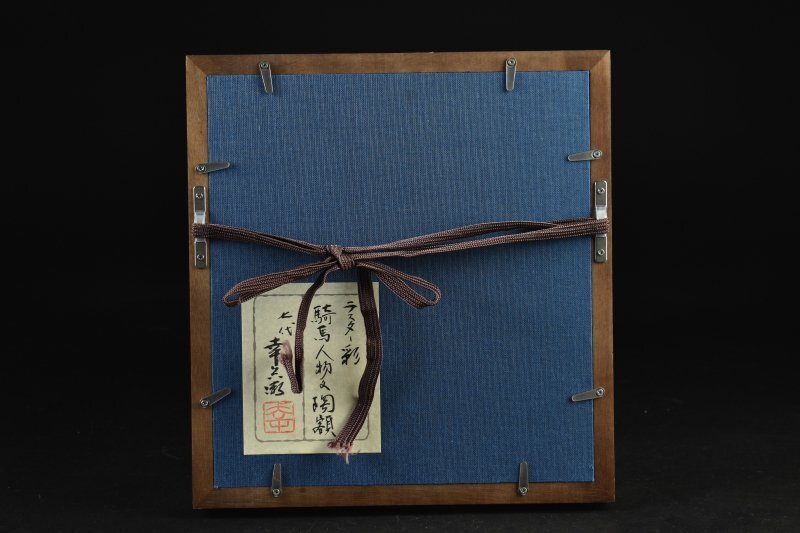 ラスター彩
騎馬人物文陶額
七代
幸兵衛